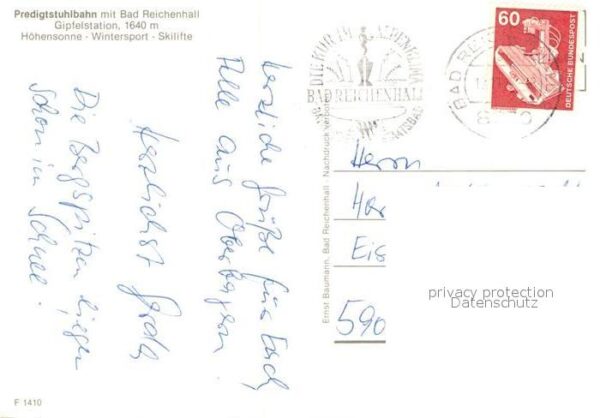 Predigtstuhlbahn mit Bad Reichenhall
Gipfelstation, 1640 m
Höhensonne - Wintersport - Skilifte
Herzliche Grüße für Euch
Alle aus Oberbayern
Herzlichst
Die Bergspitzen liegen
schon im Schnee.
F 1410
Ernst Baumann, Bad Reichenhall - Nachdruck verboten
BAD REICHENHALL
60
DEUTSCHE BUNDESPOST
BAD REI
Herrn
Eis
590
privacy protection
Datenschutz